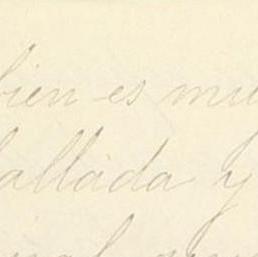 bien es mu
allada y